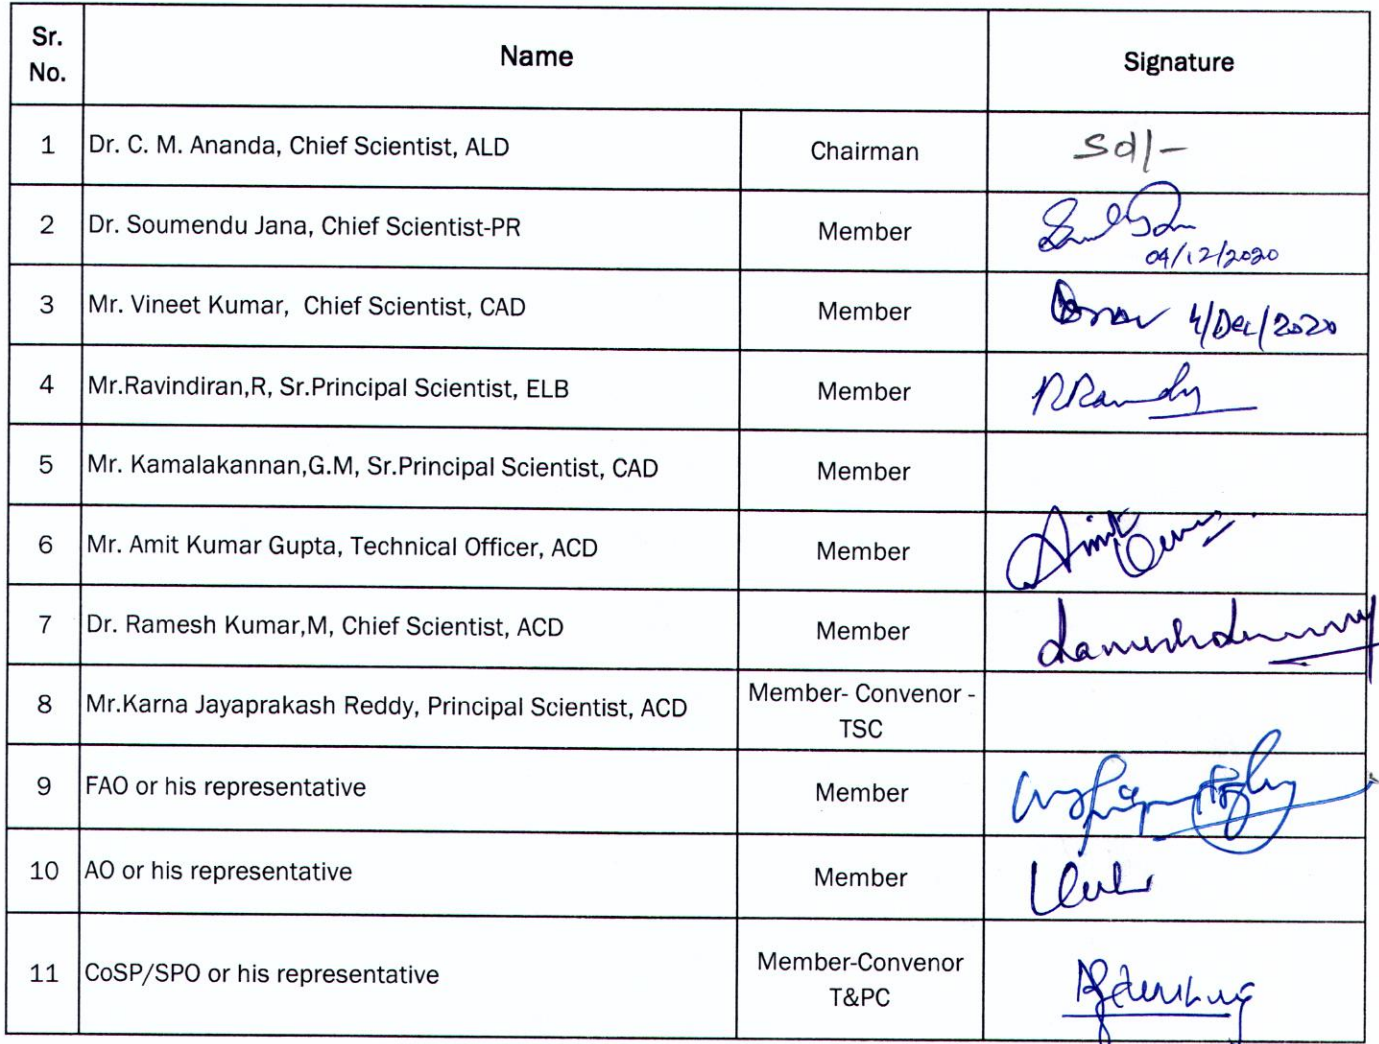 Sr. No. Name Signature
1 Dr. C. M. Ananda, Chief Scientist, ALD Chairman Sd/-
2 Dr. Soumendu Jana, Chief Scientist-PR Member
04/12/2020
3 Mr. Vineet Kumar, Chief Scientist, CAD Member 4/Dec/2020
4 Mr.Ravindiran,R, Sr.Principal Scientist, ELB Member
5 Mr. Kamalakannan,G.M, Sr.Principal Scientist, CAD Member
6 Mr. Amit Kumar Gupta, Technical Officer, ACD Member Amit
7 Dr. Ramesh Kumar,M, Chief Scientist, ACD Member
8 Mr.Karna Jayaprakash Reddy, Principal Scientist, ACD Member- Convenor - TSC
9 FAO or his representative Member
10 AO or his representative Member
11 CoSP/SPO or his representative Member-Convenor T&PC